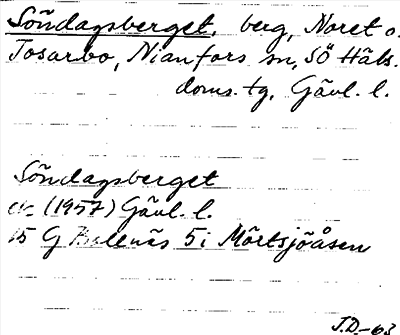 Söndagsberget, berg, Noret o.
Tosarbo, Nianfors sn, SÖ Häls.
doms. tg, Gävl. l.
Söndagsberget
ek (1957) Gävl. l.
15 G 5i Mörtsjöåsen
J.D.-63